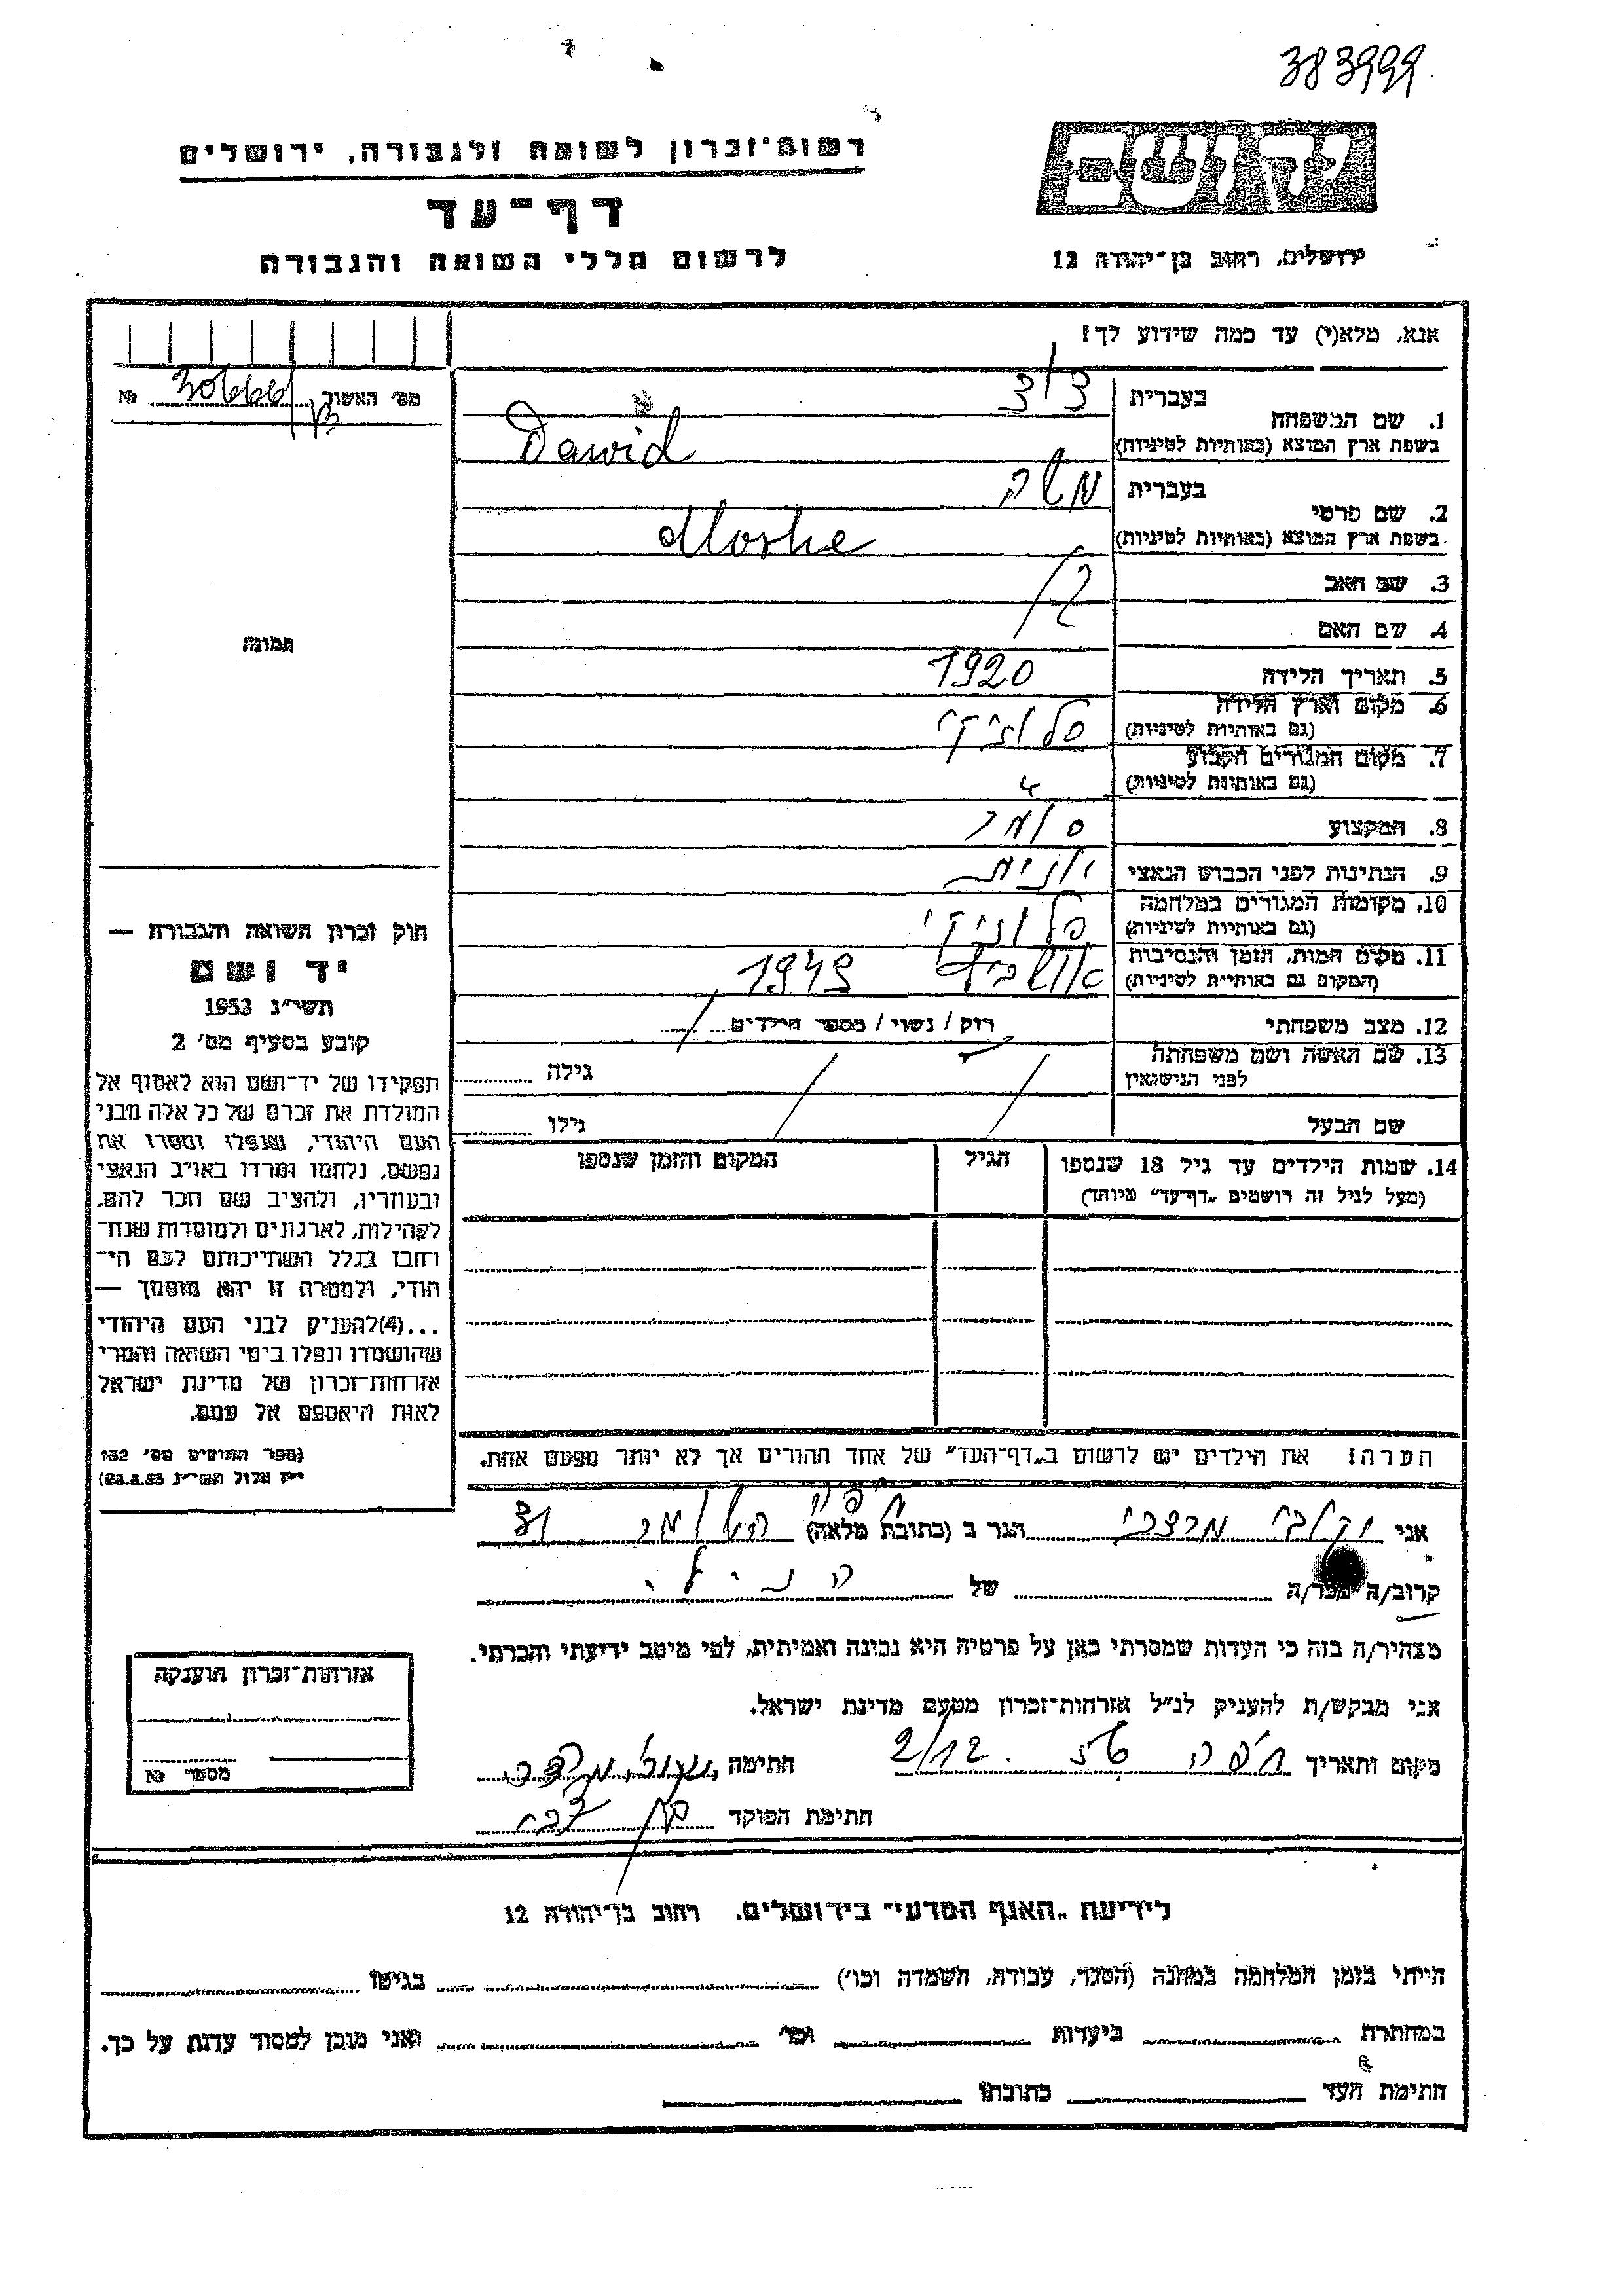 383999
רשות־זכרון לשואה ולגבורה, ירושלים
יד ושם
דף־עד
לרשום חללי השואה והגבורה
ירושלים, רחוב בן־יהודה 12
אנא, מלא(י) עד כמה שידוע לך!
מס׳ האשור № 30666/
1. שם המשפחה
בעברית דוד
בשפת ארץ המוצא (באותיות לטיניות) Dawid
2. שם פרטי
בעברית משה
בשפת ארץ המוצא (באותיות לטיניות) Moshe
3. שם האב
4. שם האם
תמונה
5. תאריך הלידה 1920
6. מקום וארץ הלידה סלוניקי
(גם באותיות לטיניות)
7. מקום המגורים הקבוע
(גם באותיות לטיניות)
8. המקצוע סוחר
9. הנתינות לפני הכבוש הנאצי יונית
10. מקומות המגורים במלחמה סלוניקי
(גם באותיות לטיניות)
11. מקום המות, הזמן והנסיבות אושביץ 1943
(המקום גם באותיות לטיניות)
12. מצב משפחתי רוק / נשוי / מספר הילדים
13. שם האשה ושם משפחתה גילה
לפני הנישואין
שם הבעל גילו
14. שמות הילדים עד גיל 18 שנספו הגיל המקום והזמן שנספו
(מעל לגיל זה רושמים „דף־עד” מיוחד)
חוק זכרון השואה והגבורה —
יד ושם
תשי״ג 1953
קובע בסעיף מס׳ 2
תפקידו של יד־ושם הוא לאסוף אל
המולדת את זכרם של כל אלה מבני
העם היהודי, שנפלו ומסרו את
נפשם, נלחמו ומרדו באויב הנאצי
ובעוזריו, ולהציב שם וזכר להם,
לקהילות, לארגונים ולמוסדות שנח־
רבו בגלל השתייכותם לעם הי־
הודי, ולמטרה זו יהא מוסמך —
...(4)להעניק לבני העם היהודי
שהושמדו ונפלו בימי השואה והמרי
אזרחות־זכרון של מדינת ישראל
לאות היאספם אל עמם.
(ספר החוקים מס׳ 132
י״ז אלול תשי״ג 28.8.53)
הערה! את הילדים יש לרשום ב„דף־העד” של אחד ההורים אך לא יותר מפעם אחת.
אני מרדכי הגר ב (כתובת מלאה) חיפה
קרוב/ה מכר/ה של הנ״ל
מצהיר/ה בזה כי העדות שמסרתי כאן על פרטיה היא נכונה ואמיתית, לפי מיטב ידיעתי והכרתי.
אני מבקש/ת להעניק לנ״ל אזרחות־זכרון מטעם מדינת ישראל.
מקום ותאריך חיפה 2/12. 56 חתימה
חתימת הפוקד
אזרחות־זכרון הוענקה
מספר №
לידיעת „האגף המדעי” בירושלים, רחוב בן־יהודה 12
הייתי בזמן המלחמה במחנה (הסגר, עבודה, השמדה וכו׳) בגיטו
במחתרת ביערות וכו׳ ואני מוכן למסור עדות על כך.
חתימת העד כתובתו